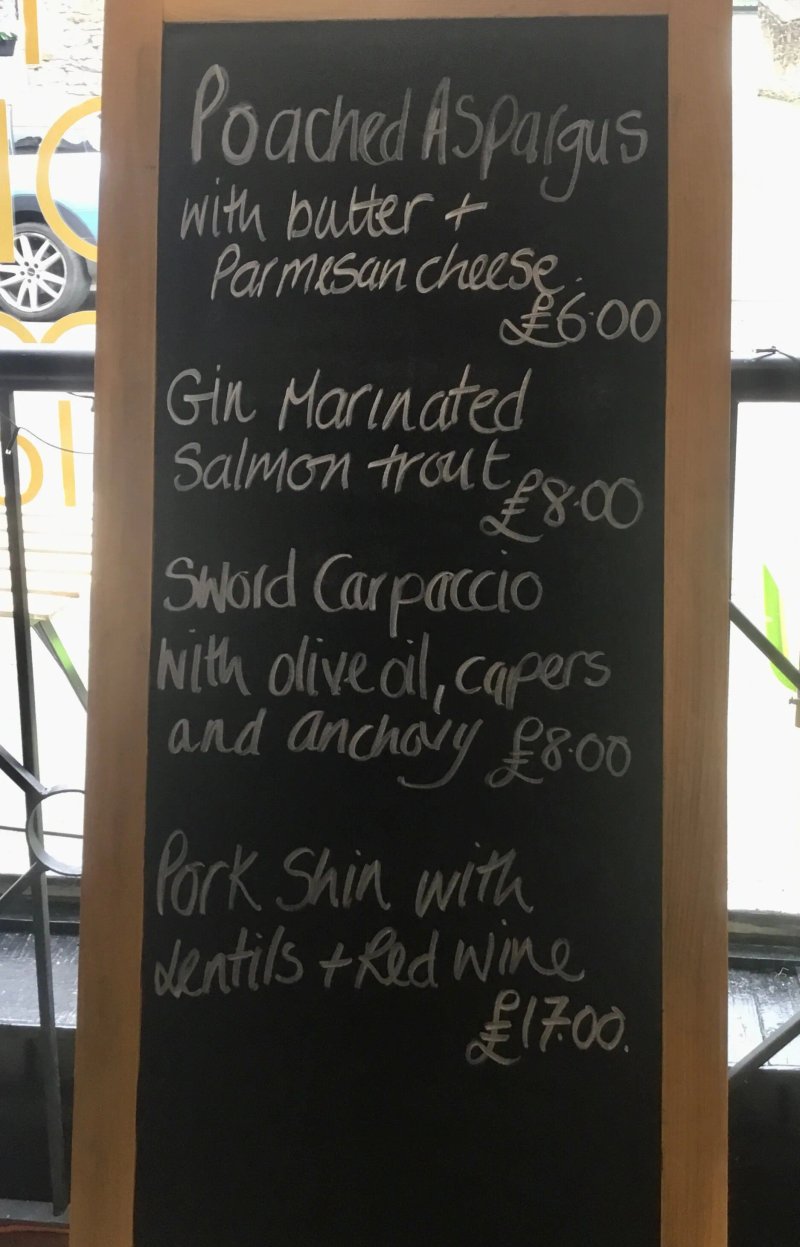 Poached Aspargus
with butter +
Parmesan cheese.
£6.00
Gin Marinated
Salmon trout £8.00
Sword Carpaccio
with olive oil, capers
and anchovy £8.00
Pork Shin with
Lentils + Red Wine
£17.00.